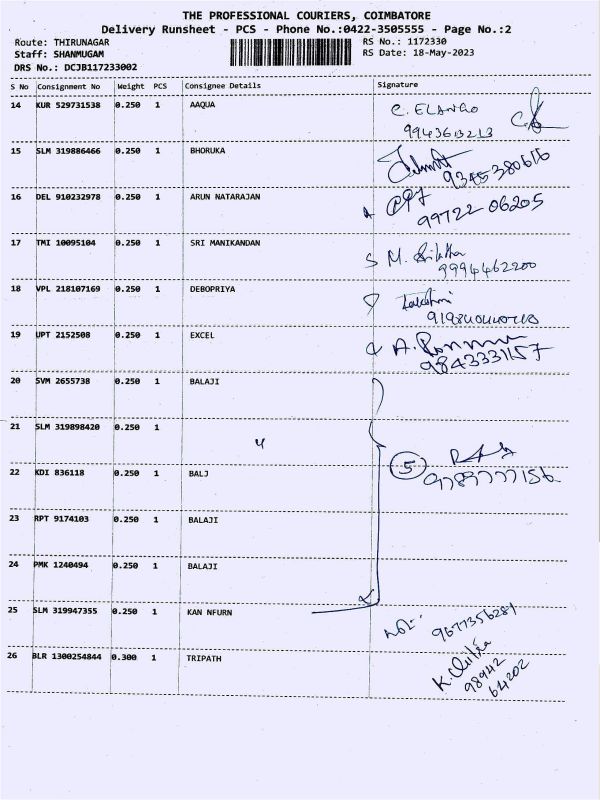 THE PROFESSIONAL COURIERS, COIMBATORE
Delivery Runsheet - PCS - Phone No.:0422-3505555 - Page No.:2
Route: THIRUNAGAR
Staff: SHANMUGAM
DRS No.: DCJB117233002
RS No.: 1172330
RS Date: 18-May-2023
S No Consignment No Weight PCS Consignee Details Signature
14 KUR 529731538 0.250 1 AAQUA C. ELANGO
9943613213
15 SLM 319886466 0.250 1 BHORUKA
9345380616
16 DEL 910232978 0.250 1 ARUN NATARAJAN
99722 06205
17 TMI 10095104 0.250 1 SRI MANIKANDAN S M.
9994462200
18 VPL 218107169 0.250 1 DEBOPRIYA
19 UPT 2152508 0.250 1 EXCEL A.
9843331157
20 SVM 2655738 0.250 1 BALAJI
21 SLM 319898420 0.250 1
4
5
9787777156
22 KDI 836118 0.250 1 BALJ
23 RPT 9174103 0.250 1 BALAJI
24 PMK 1240494 0.250 1 BALAJI
25 SLM 319947355 0.250 1 KAN NFURN
9677356281
26 BLR 1300254844 0.300 1 TRIPATH
98942
64202